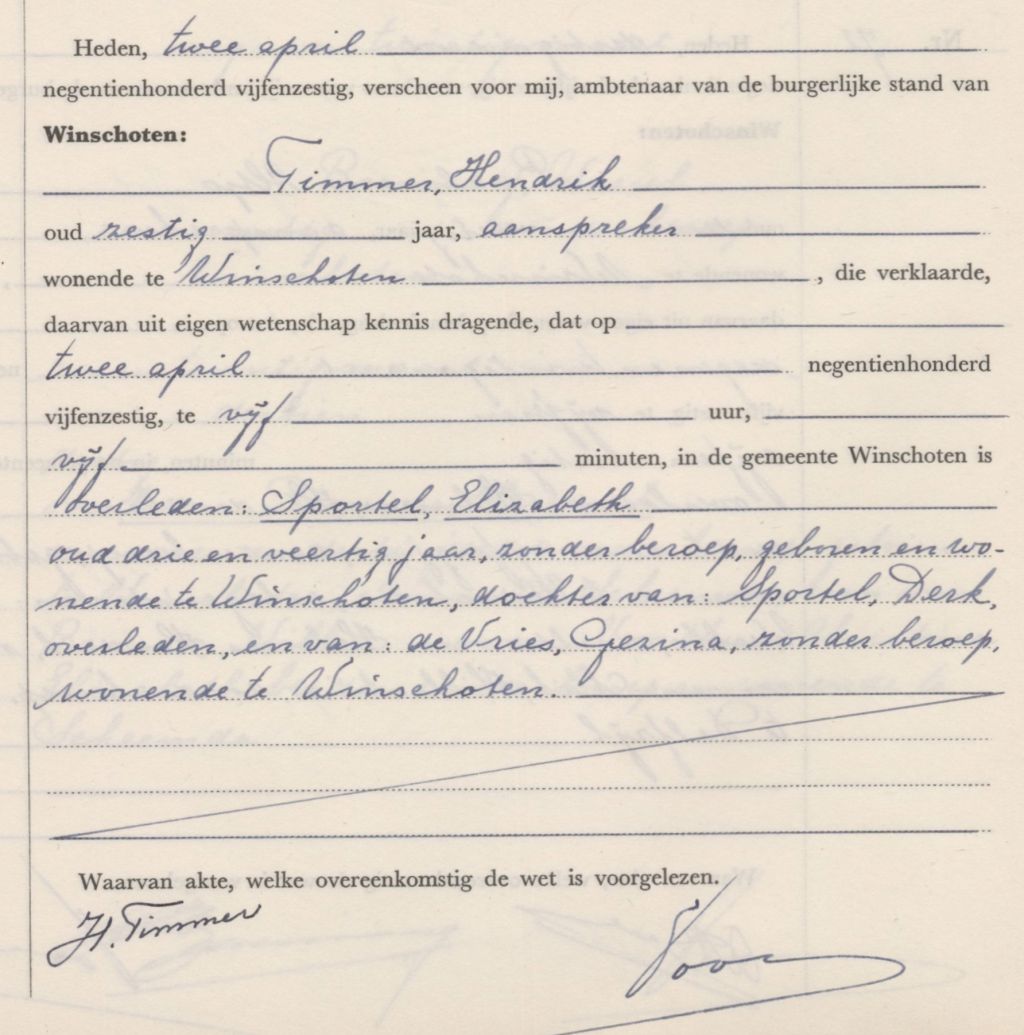 Heden, twee april
negentienhonderd vijfenzestig, verscheen voor mij, ambtenaar van de burgerlijke stand van
Winschoten:
Timmer, Hendrik
oud zestig jaar, aanspreker
wonende te Winschoten, die verklaarde,
daarvan uit eigen wetenschap kennis dragende, dat op
twee april negentienhonderd
vijfenzestig, te vijf uur,
vijf minuten, in de gemeente Winschoten is
overleden: Sportel, Elizabeth
oud drie en veertig jaar, zonder beroep, geboren en wo-
nende te Winschoten, dochter van: Sportel, Derk,
overleden, en van: de Vries, Gezina, zonder beroep,
wonende te Winschoten.
Waarvan akte, welke overeenkomstig de wet is voorgelezen.
H. Timmer